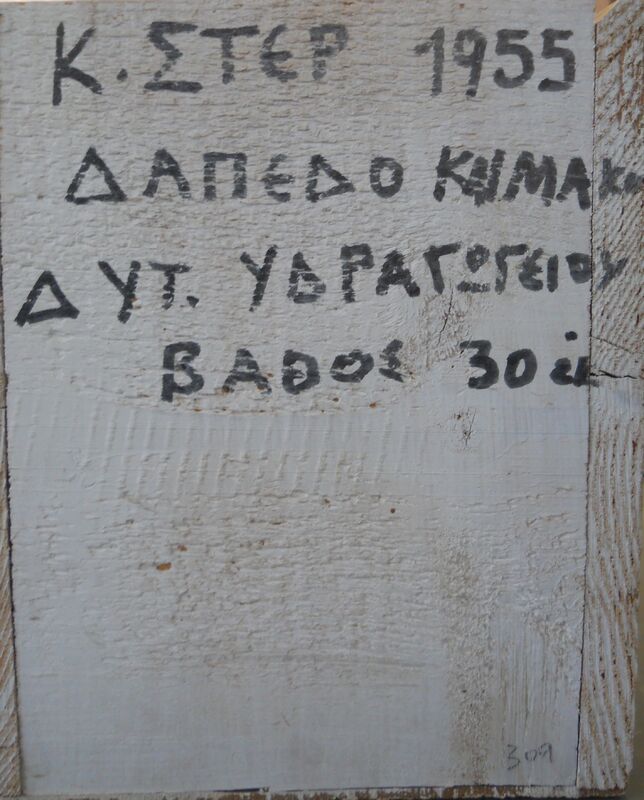 Κ. ΣΤΕΡ 1955
ΔΑΠΕΔΟ
ΔΥΤ. ΥΔΡΑΓΩΓΕΙΟΥ
ΒΑΘΟΣ 30
309